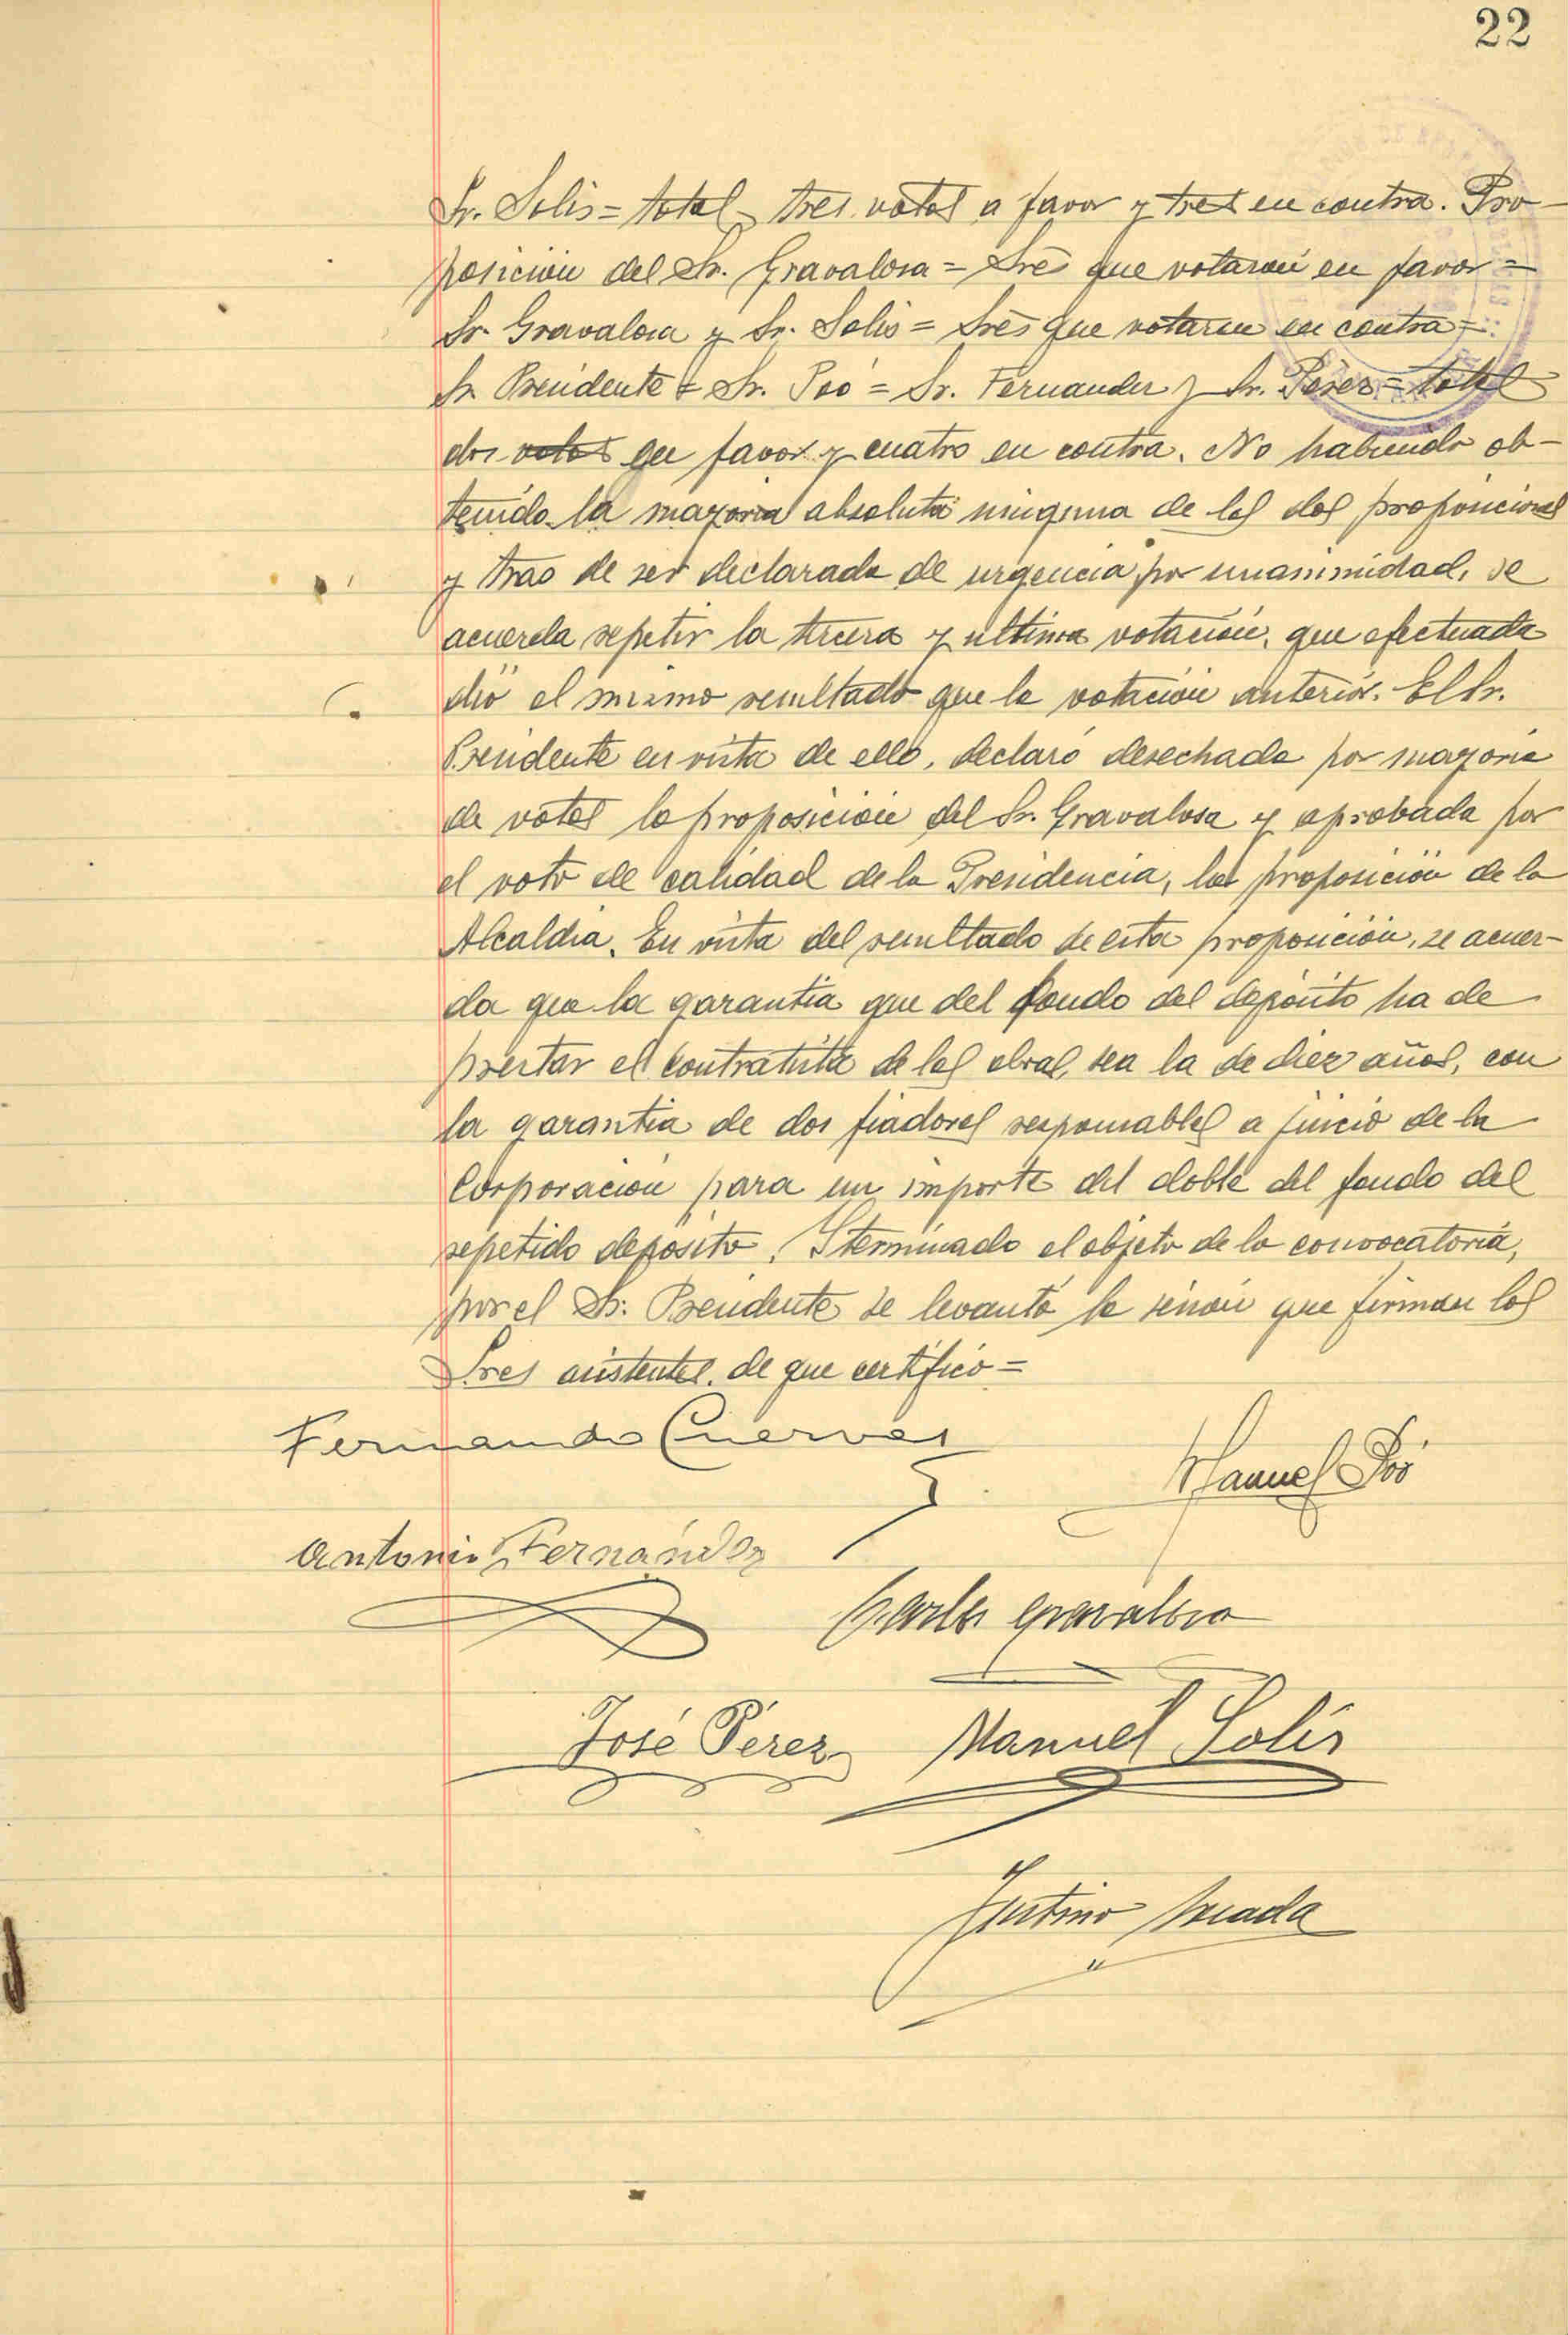 22
Sr. Solis = total, tres votos a favor y tres en contra. Pro-
posición del Sr. Gravalosa = Sres que votaron en favor =
Sr. Gravalosa y Sr. Solis = Sres que votaron en contra =
Sr. Presidente = Sr. Poó = Sr. Fernandez y Sr. Pérez = total
dos votos en favor y cuatro en contra. No habiendo ob-
tenido la mayoria absoluta ninguna de las dos proposiciones
y tras de ser declarada de urgencia por unanimidad, se
acuerda repetir la tercera y ultima votación, que efectuada
dió el mismo resultado que la votación anterior. El Sr.
Presidente en vista de ello, declaró desechada por mayoria
de votos la proposición del Sr. Gravalosa y aprobada por
el voto de calidad de la Presidencia, la proposición de la
Alcaldia. En vista del resultado de esta proposición, se acuer-
da que la garantia que del fondo del depósito ha de
prestar el contratista de las obras, sea la de diez años, con
la garantia de dos fiadores responsables a juicio de la
Corporación para un importe del doble del fondo del
repetido depósito. Y terminado el objeto de la convocatoria,
por el Sr. Presidente se levantó la sesión que firman los
Sres asistentes, de que certifico =
Fernando Cuervas
Manuel Poó
Antonio Fernández
Carlos Gravalosa
José Pérez Manuel Solís
Justino